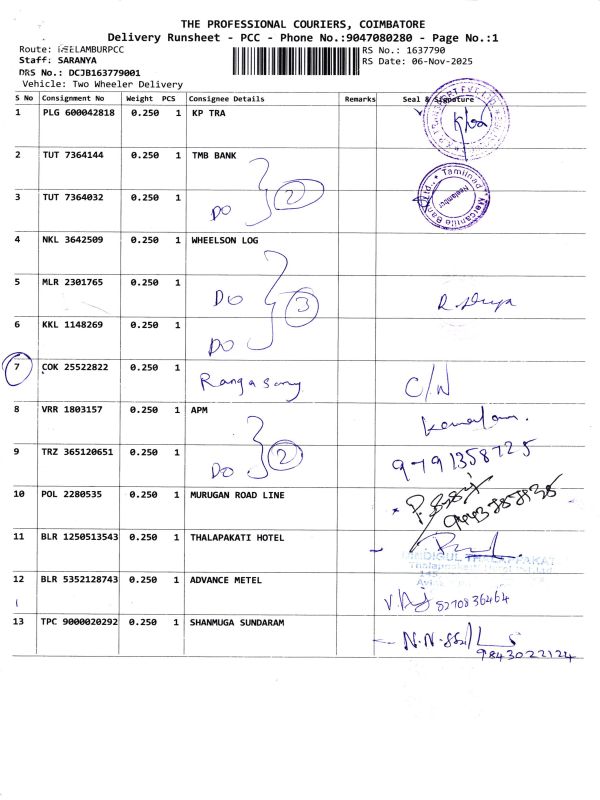 THE PROFESSIONAL COURIERS, COIMBATORE
Delivery Runsheet - PCC - Phone No.:9047080280 - Page No.:1
Route: NEELAMBURPCC
RS No.: 1637790
Staff: SARANYA
RS Date: 06-Nov-2025
DRS No.: DCJB163779001
Vehicle: Two Wheeler Delivery
S No Consignment No Weight PCS Consignee Details Remarks Seal & Signature
1 PLG 600042818 0.250 1 KP TRA
2 TUT 7364144 0.250 1 TMB BANK
3 TUT 7364032 0.250 1 DO 2
Tamilnad Mercantile Bank Ltd. Neelambur
4 NKL 3642509 0.250 1 WHEELSON LOG
5 MLR 2301765 0.250 1 DO 3
6 KKL 1148269 0.250 1 DO
7 COK 25522822 0.250 1 Rangasamy C/N
8 VRR 1803157 0.250 1 APM
9 TRZ 365120651 0.250 1 DO 2 9791358725
10 POL 2280535 0.250 1 MURUGAN ROAD LINE
11 BLR 1250513543 0.250 1 THALAPAKATI HOTEL
12 BLR 5352128743 0.250 1 ADVANCE METEL 8270836464
13 TPC 9000020292 0.250 1 SHANMUGA SUNDARAM
9843022124